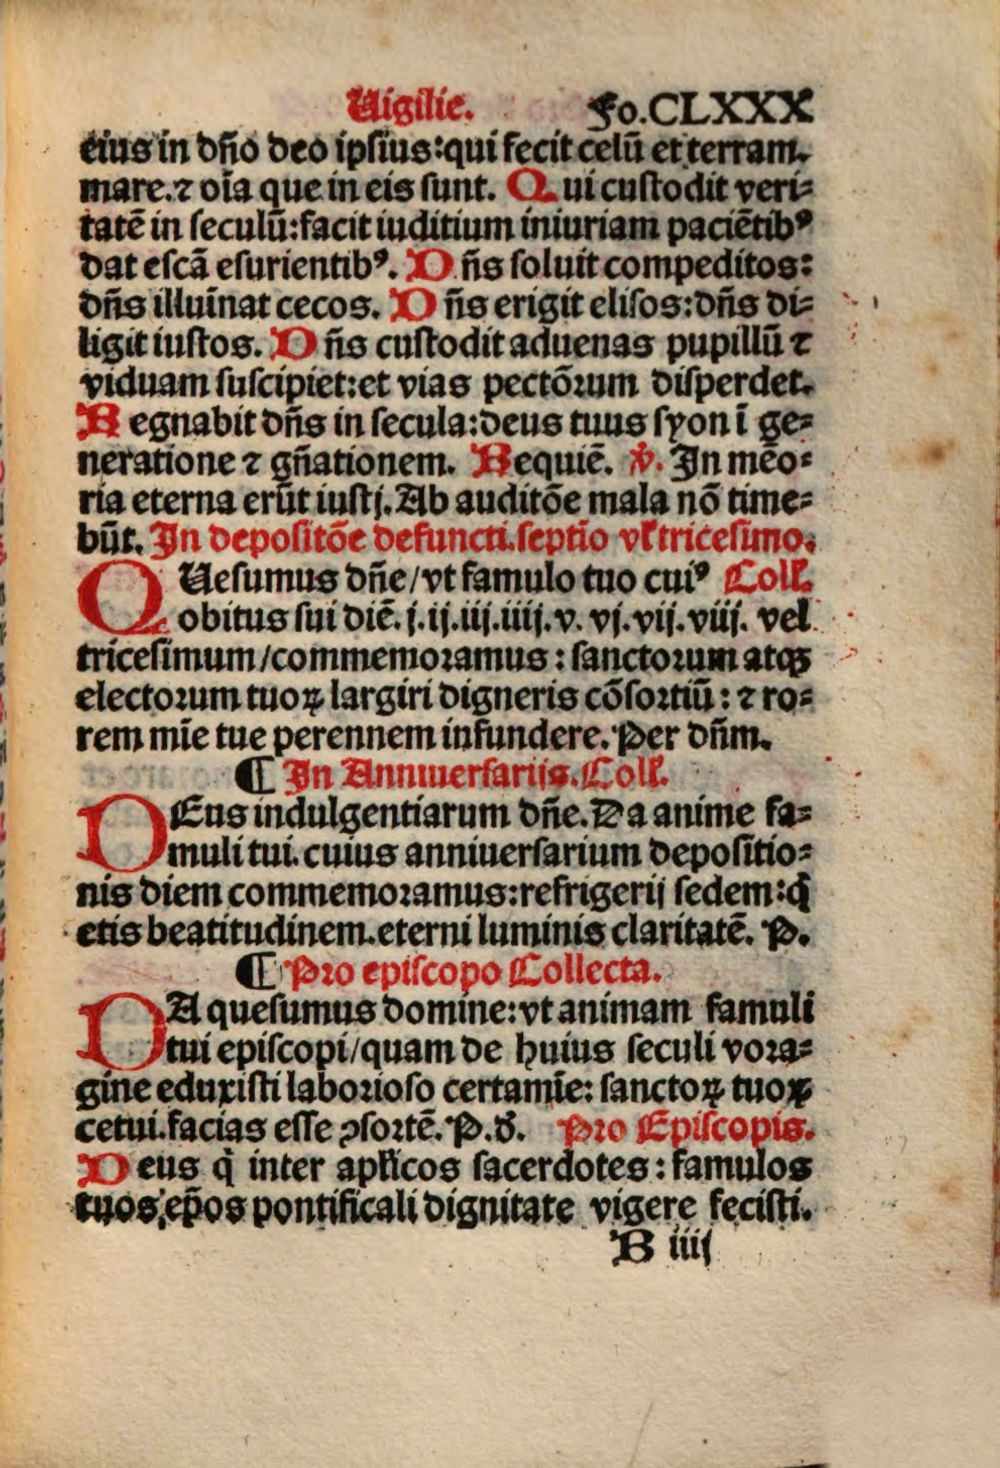 Uigilie. Fo.CLXXX
eius in dño deo ipsius:qui fecit celū et terram.
mare.⁊ oīa que in eis sunt. Qui custodit veri=
tatē in seculū:facit iuditium iniuriam paciētibꝰ
dat escā esurientibꝰ. Dñs soluit compeditos:
dñs illuīnat cecos. Dñs erigit elisos:dñs di=
ligit iustos. Dñs custodit aduenas pupillū ⁊
viduam suscipiet:et vias pectōrum disperdet.
Regnabit dñs in secula:deus tuus syon ī ge=
neratione ⁊ gñationem. Requiē. ℣. In mēo=
ria eterna erūt iustj. Ab auditōe mala nō time=
būt. In depositōe defuncti.septīo vƚ tricesimo.
QUesumus dñe/vt famulo tuo cuiꝰ Coll.
obitus sui diē.j.ij.iij.iiij.v.vj.vij.viij. vel
tricesimum/commemoramus:sanctorum atqꝫ
electorum tuoꝝ largiri digneris cōsortiū:⁊ ro=
rem mīe tue perennem infundere. Per dñm.
¶ In Anniuersarijs. Coll.
DEus indulgentiarum dñe. Da anime fa=
muli tui.cuius anniuersarium depositio=
nis diem commemoramus:refrigerij sedem:q̄
etis beatitudinem.eterni luminis claritatē. P.
¶ Pro episcopo Collecta.
DA quesumus domine:vt animam famuli
tui episcopi/quam de huius seculi vora=
gine eduxisti laborioso certamīe:sanctoꝝ tuoꝝ
cetui.facias esse ꝯsortē. P.d. Pro Episcopis.
Deus q̄ inter apƚicos sacerdotes:famulos
tuos,ep̄os pontificali dignitate vigere fecisti.
B iiij